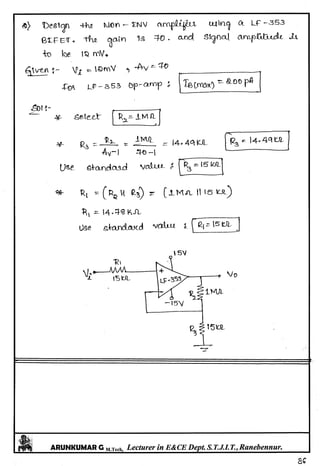 2) Design the Non-INV amplifier using a LF-353
BIFET. The gain is 70. and signal amplitude is
to be 12 mV.
Given :- Vi = 12mV , Av = 70
For LF-353 op-amp ; IB(max) = 200 pA
Sol :-
* Select R2 = 1MΩ
* R3 = R2 / Av-1 = 1MΩ / 70-1 = 14.49KΩ R3 = 14.49KΩ
Use standard value : R3 = 15 kΩ
* R1 = (R2 || R3) = (1MΩ || 15 KΩ)
R1 = 14.78 KΩ
Use standard value : R1 = 15KΩ
15V
R1
Vi + Vo
15KΩ LF-353
- R2 1MΩ
-15V
R3 15KΩ
ARUNKUMAR G M.Tech, Lecturer in E&CE Dept. S.T.J.I.T., Ranebennur.
86